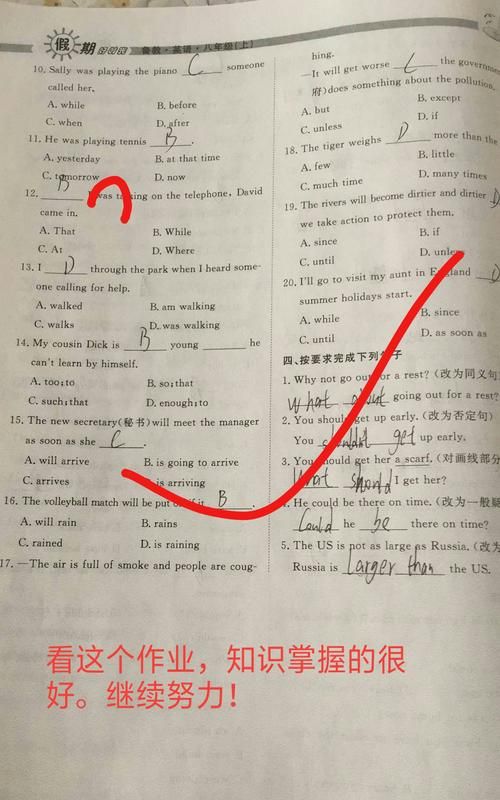 假期
鲁教·英语·八年级(上)
10. Sally was playing the piano C someone
called her.
A. while B. before
C. when D. after
11. He was playing tennis B .
A. yesterday B. at that time
C. tomorrow D. now
12. B I was talking on the telephone, David
came in.
A. That B. While
C. At D. Where
13. I D through the park when I heard some-
one calling for help.
A. walked B. am walking
C. walks D. was walking
14. My cousin Dick is B young he
can't learn by himself.
A. too;to B. so;that
C. such;that D. enough;to
15. The new secretary(秘书)will meet the manager
as soon as she C .
A. will arrive B. is going to arrive
C. arrives is arriving
16. The volleyball match will be put off if it B .
A. will rain B. rains
C. rained D. is raining
17. —The air is full of smoke and people are coug-
hing.
—It will get worse C the governme
府)does something about the pollution.
A. but B. except
C. unless D. if
18. The tiger weighs D more than the
A. few B. little
C. much time D. many times
19. The rivers will become dirtier and dirtier D
we take action to protect them.
A. since B. if
C. until D. unless
20. I'll go to visit my aunt in England D
summer holidays start.
A. while B. since
C. until D. as soon as
四、按要求完成下列句子
1. Why not go out for a rest? (改为同义句
What about going out for a rest?
2. You should get up early. (改为否定句)
You shouldn't get up early.
3. You should get her a scarf. (对画线部分
What should I get her?
4. He could be there on time. (改为一般疑
Could he be there on time?
5. The US is not as large as Russia. (改为
Russia is larger than the US.
看这个作业，知识掌握的很
好。继续努力！